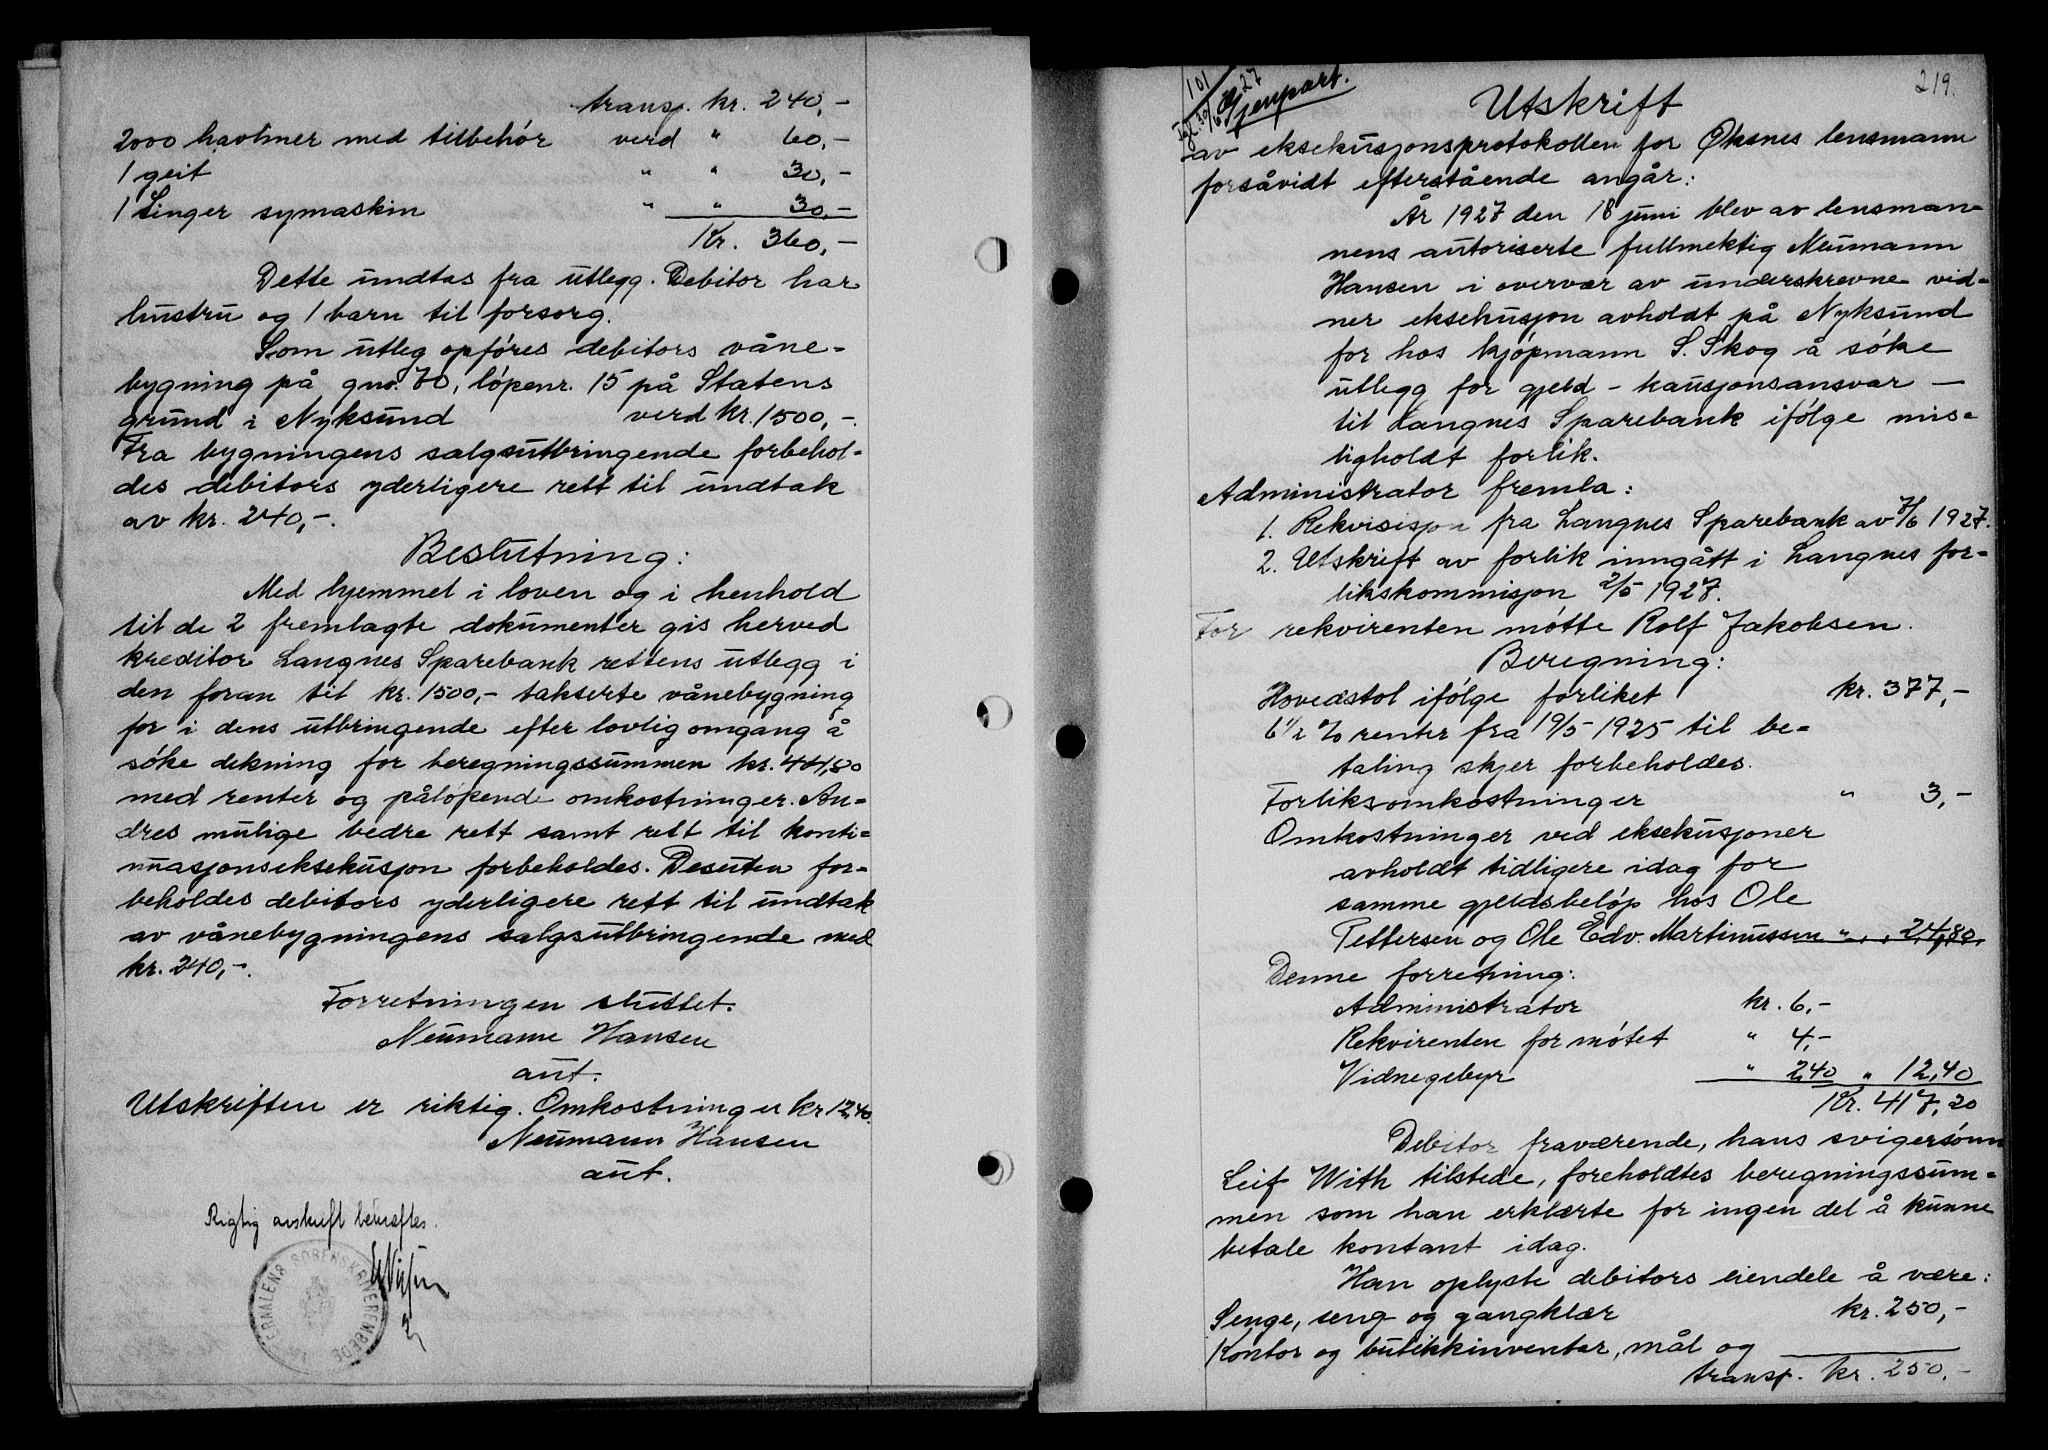 transp. kr. 240,-
2000 havliner med tilbehör verd " 60,-
1 geit " " 30,-
1 Singer symaskin " " 30,-
Kr. 360,-
Dette undtas fra utlegg. Debitor har
hustru og 1 barn til forsorg.
Som utleg opföres debitors våne-
bygning på gno. 70, löpenr. 15 på Statens
grund i Nyksund verd kr. 1500,-.
Fra bygningens salgsutbringende forbehol-
des debitors yderligere rett til undtak
av kr. 240,-.
Beslutning:
Med hjemmel i loven og i henhold
til de 2 fremlagte dokumenter gis herved
kreditor Langnes Sparebank rettens utlegg i
den foran til kr. 1500,- takserte vånebygning
for i dens utbringende efter lovlig omgang å
söke dekning for beregningssummen kr. 441,80
med renter og påløpende omkostninger. An-
dres mulige bedre rett samt rett til konti-
nuasjonseksekusjon forbeholdes. Desuten for-
beholdes debitors yderligere rett til undtak
av vånebygningens salgsutbringende med
kr. 240,-.
Forretningen sluttet.
Neumann Hansen
aut.
Utskriften er riktig. Omkostninger kr 12,40.
Neumann Hansen
aut.
Rigtig avskrift bekræftes.
VESTERAALENS SORENSKRIVEREMBEDE
219.
101/27
Gjenpart.
Utskrift
av eksekusjonsprotokollen for Øksnes lensmann
forsåvidt efterstående angår:
År 1927 den 18 juni blev av lensman-
nens autoriserte fullmektig Neumann
Hansen i overvær av underskrevne vid-
ner eksekusjon avholdt på Nyksund
for hos kjøpmann S. Skog å söke
utlegg for gjeld - kausjonsansvar -
til Langnes Sparebank ifölge mis-
ligholdt forlik.
Administrator fremla:
1. Rekvisisjon fra Langnes Sparebank av 7/6 1927.
2. Utskrift av forlik inngått i Langnes for-
likskommisjon 2/5 1927.
For rekvirenten møtte Rolf Jakobsen.
Beregning:
Hovedstol ifölge forliket kr. 377,-
6 1/2 % renter fra 19/5-1925 til be-
taling skjer forbeholdes.
Forliksomkostninger " 3,-
Omkostninger ved eksekusjoner
avholdt tidligere idag for
samme gjeldsbeløp hos Ole
Pettersen og Ole Edv. Martinussen " 24,80.
Denne forretning:
Administrator kr. 6,-
Rekvirenten for møtet " 4,-
Vidnegebyr " 2,40 " 12,40
Kr. 417,20
Debitor fraværende, hans svigersönn
Leif With tilstede, foreholdtes beregningssum-
men som han erklærte for ingen del å kunne
betale kontant idag.
Han oplyste debitors eiendele å være:
Senge, seng og gangklær kr. 250,-
Kontor og butikkinventar, mål og
transp. kr. 250,-